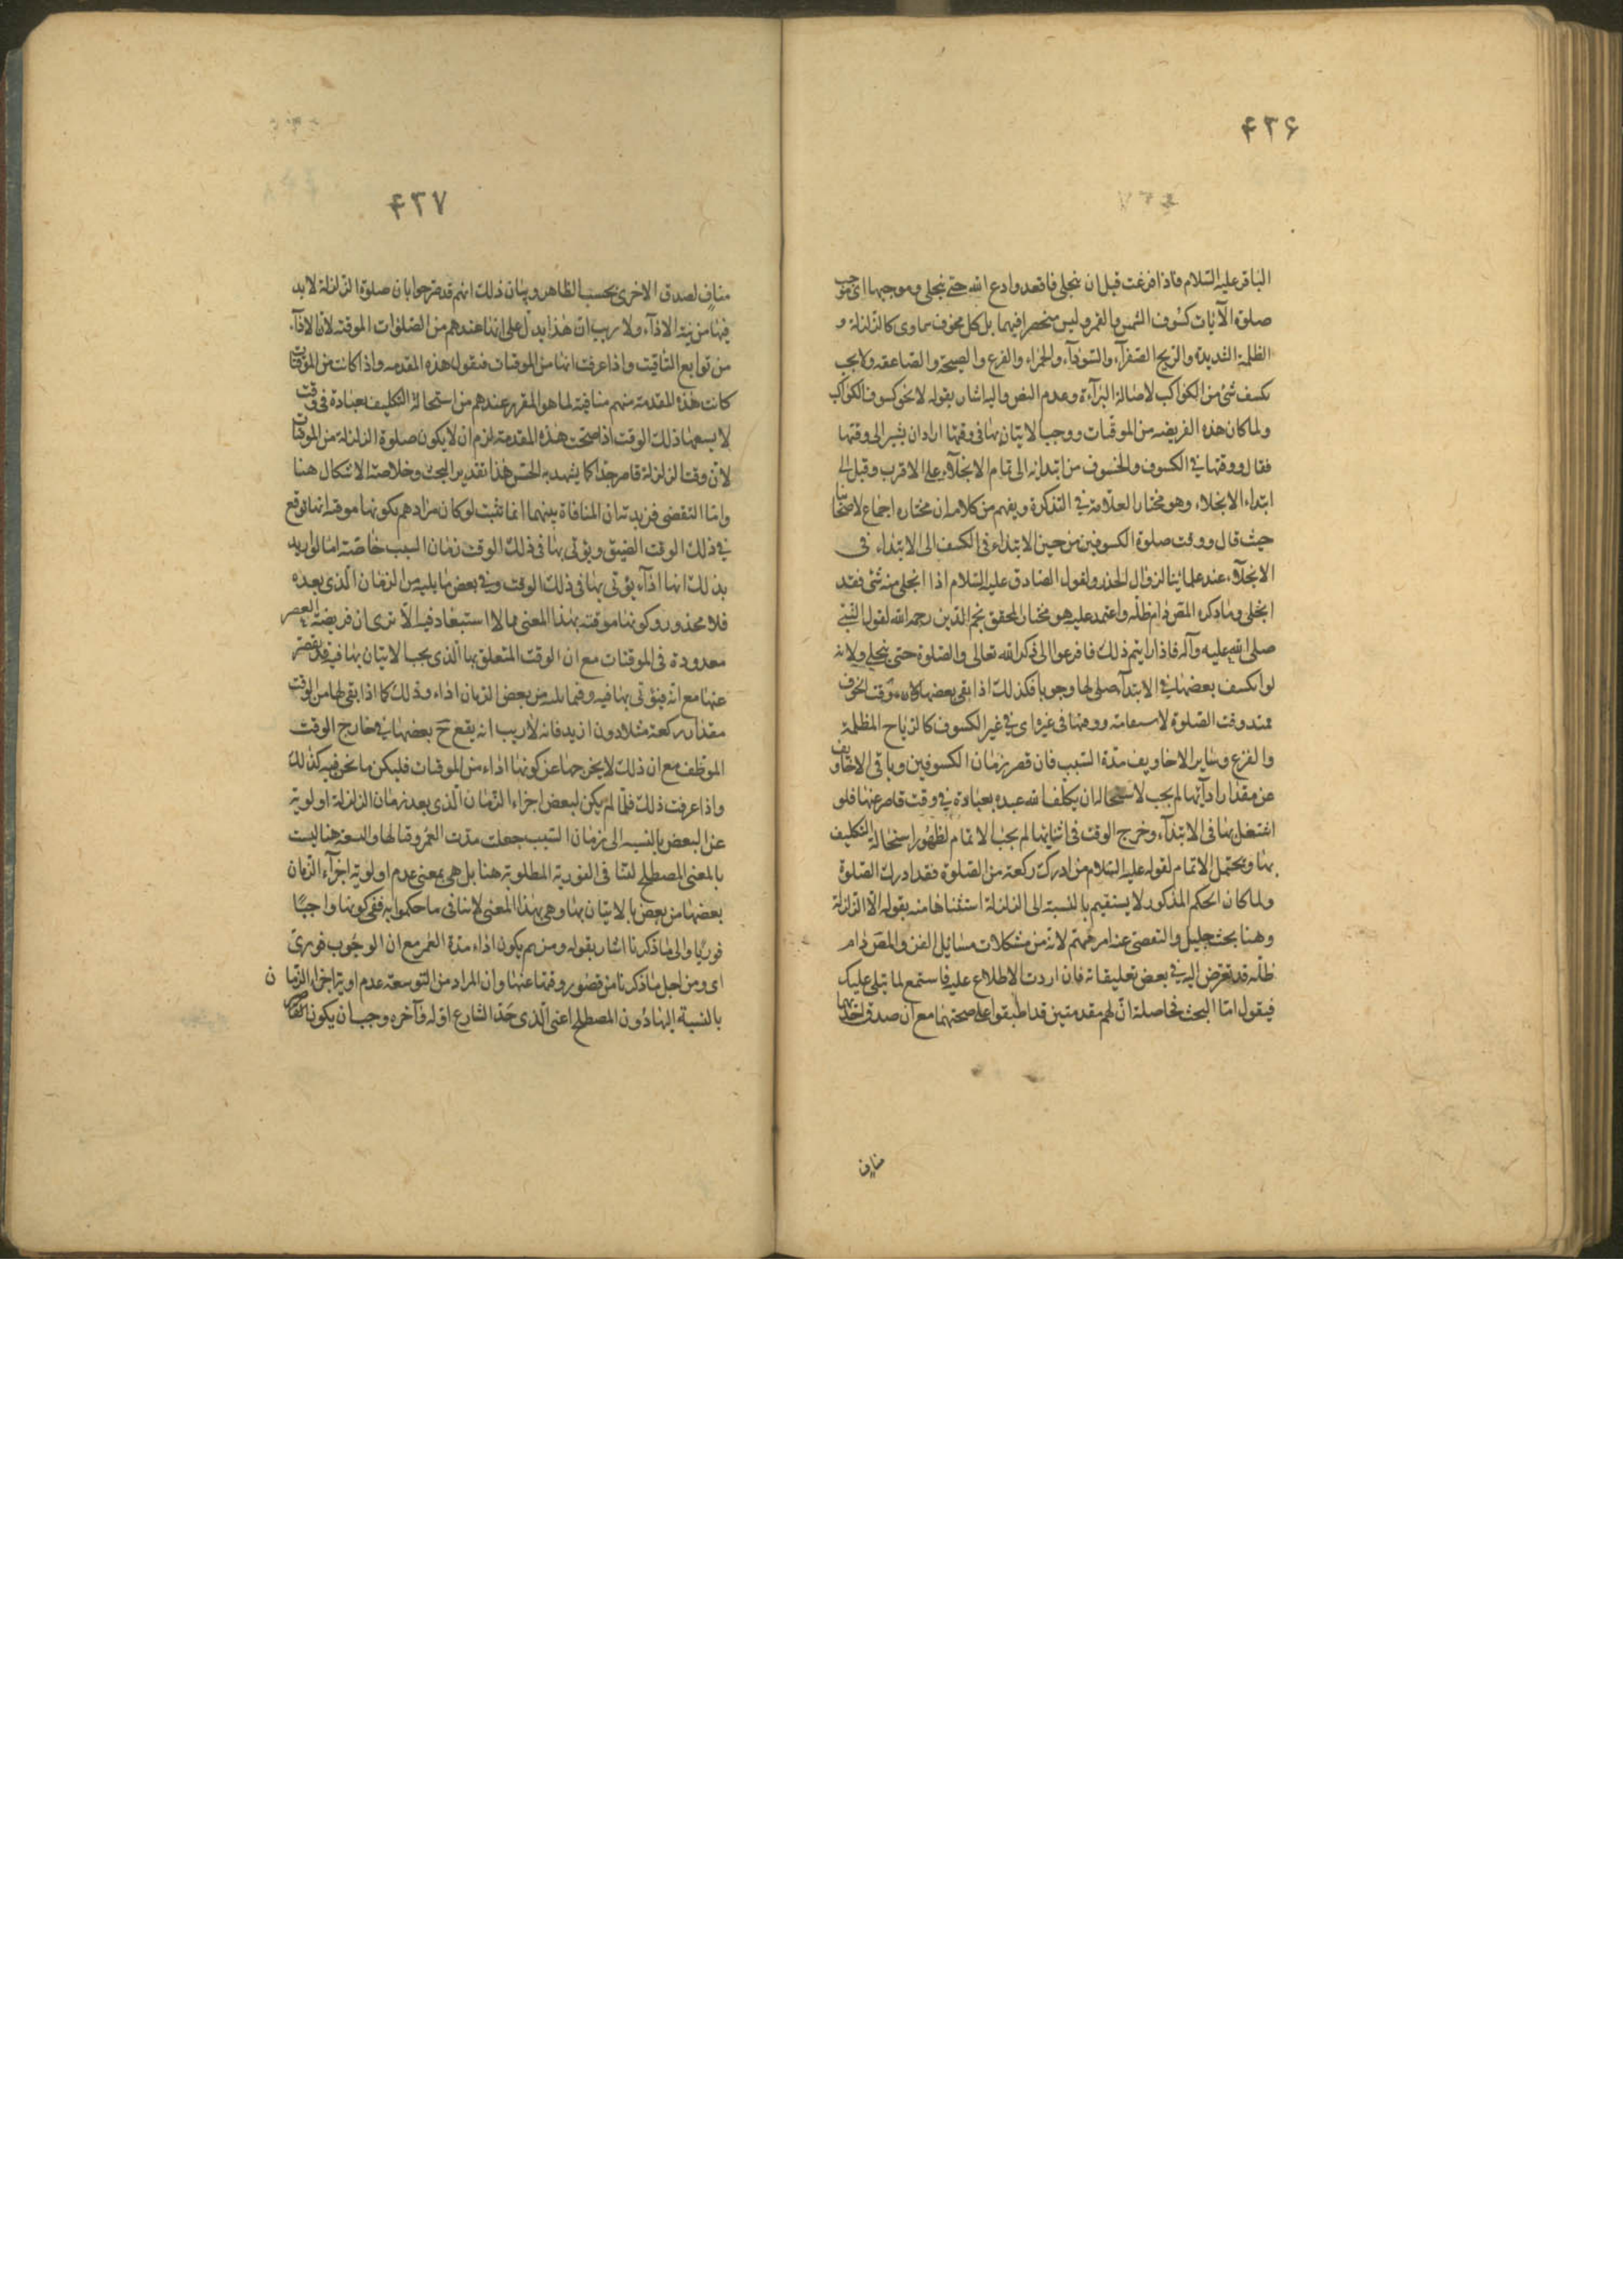 ۴۳۶
الباقر عليه السلام فاذا فرغت قبل ان ينجلى فاقعد وادع الله حتى ينجلى وموجبها اى موجب
صلوة الآيات كسوف الشمس والقمر وليس منحصرا فيهما بل كل مخوف سماوى كالزلزلة و
الظلمة الشديدة والريح الصفرآء والسودآء والحمراء والفزع والصيحة والصاعقه ولا يجب
بكسف شئ من الكواكب لاصالة البرآءة وعدم النص واليه اشار بقوله لا نحو كسوف الكواكب
ولما كان هذه الفريضه من الموقتات ووجب الاتيان بها فى وقتها اراد ان يشير الى وقتها
فقال ووقتها فى الكسوف والخسوف من ابتدائه الى تمام الانجلآء على الاقرب وقيل الى
ابتداء الانجلاء وهو مختار العلامة فى التذكرة ويفهم من كلامه ان مختاره اجماع لاصحابنا
حيث قال ووقت صلوة الكسوفين من حين الابتداء فى الكسف الى الابتداء فى
الانجلآء عند علمائنا لزوال الحذر ولقول الصادق عليه السلام اذا انجلى منه شئ فقد
انجلى وما ذكره المص دام ظله واعتمد عليه هو مختار المحقق نجم الدين رحمه الله لقول النبى
صلى الله عليه وآله فاذا رايتم ذلك فافزعوا الى ذكر الله تعالى والصلوة حتى ينجلى ولانه
لو انكسف بعضها فى الابتدآء صلى لها وجوبا فكذلك اذا بقى بعضها وقت الخوف
ممتد وقت الصلوة لاستدامته ووقتها فى غيره اى فى غير الكسوف كالرياح المظلمة
والفزع وساير الاخاويف مدة السبب فان قصر زمان الكسوفين وباقى الاخاويف
عن مقدار ادآئها لم يجب لاستحالة ان يكلف الله عبده بعبادة فى وقت قاصر عنها فلو
اشتغل بها فى الابتدآء وخرج الوقت فى اثنائها لم يجب الاتمام لظهور استحالة التكليف
بها ويحتمل الاتمام لقوله عليه السلام من ادرك ركعة من الصلوة فقد ادرك الصلوة
ولما كان الحكم المذكور لا يستقيم بالنسبة الى الزلزلة استثناها منه بقوله الا الزلزلة
وهنا بحث جليل والتفصى عنه امر مهم لانه من مشكلات مسائل الفن والمص دام
ظله قد تعرض اليه فى بعض تعليقاته فان اردت الاطلاع عليه فاستمع لما يتلى عليك
فيقول اما البحث فحاصله ان لهم مقدمتين قد اطبقوا على صحتهما مع ان صدق احديهما
مناف
۴۳۷
مناف لصدق الاخرى بحسب الظاهر وبيان ذلك انهم قد صرحوا بان صلوة الزلزلة لابد
فيها من نية الادآء ولا ريب ان هذا يدل على انها عندهم من الصلوات الموقتة لان الادآء
من توابع التاقيت واذا عرفت انها من الموقتات فنقول هذه المقدمه واذا كانت من الموقتات
كانت هذه المقدمة منهم منافية لما هو المقرر عندهم من استحالة التكليف بعبادة فى وقت
لا يسعها ذلك الوقت اذا صحت هذه المقدمة لزم ان لا يكون صلوة الزلزلة من الموقتات
لان وقت الزلزلة قاصر جدا كما يشهد به الحس هذا تقدير البحث وخلاصة الاشكال هنا
واما التفصى فزبدته ان المنافاة بينهما انما تثبت لو كان مرادهم بكونها موقتة انها توقع
فى ذلك الوقت الضيق ويؤتى بها فى ذلك الوقت زمان السبب خاصة اما لو اريد
بذلك انها اداء يؤتى بها فى ذلك الوقت وفى بعض ما يليه من الزمان الذى بعده
فلا محذور وكونها موقتة بهذا المعنى مما لا استبعاد فيه الا ترى ان فريضة العصر
معدودة فى الموقتات مع ان الوقت المتعلق بها الذى يجب الاتيان بها فيه قد يقصر
عنها مع انه فيؤتى بها فيه وفيما يليه من بعض الزمان اداء وذلك كما اذا بقى لها من الوقت
مقدار ركعة مثلا دون ازيد فانه لا ريب انه يقع ح بعضها فى خارج الوقت
الموظف مع ان ذلك لا يخرجها عن كونها اداء من الموقتات فليكن ما نحن فيه كذلك
واذا عرفت ذلك فلما لم يكن لبعض اجزاء الزمان الذى بعد زمان الزلزلة اولوية
عن البعض بالنسبه الى زمان السبب جعلت مدت العمر وقتا لها والسعة هنا ليست
بالمعنى المصطلح لتنافى الفورية المطلوبة هنا بل هى بمعنى عدم اولوية اجزآء الزمان
بعضها من بعض بالاتيان بها وهى بهذا المعنى لا تنافى ما حكموا به ففى كونها واجبًا
فوريا والى ما ذكرنا اشار بقوله ومن ثم يكون اداء مدة العمر مع ان الوجوب فورى
اى ومن اجل ما ذكرنا من قصور وقتها عنها وان المراد من التوسعة عدم اولوية اجزاء الزمان
بالنسبة اليها دون المصطلح اعنى الذى حد الشارع اوله وآخره وجب ان يكون